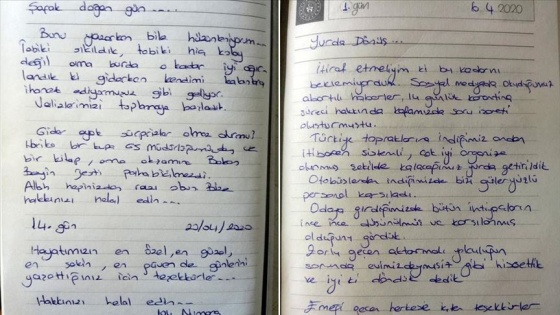 Şafak doğan gün.....
Bunu yazarken bile hüzünleniyorum...
Tabiki sıkıldık, tabiki hiç kolay
değil ama burda o kadar iyi ağır-
landık ki giderken kendimi
ihanet ediyormuşuz gibi geliyor.
Valizlerimizi toplamaya başladık.
Gider ayak sürprizler olma durumu?
Harika bir kupa GS müdürlüğümüzden ve
bir kitap, ama akşamına Bakan
Beyin jesti paha biçilmezdi.
Allah hepinizden razı olsun Bize
hakkınızı helal edin...
14. gün 20/04/2020
Hayatımızın en özel, en güzel,
en sakin, en güvende günlerini
yazdığınız için teşekkürler...
Hakkınızı helal edin...
1. gün 6.4.2020
Yurda Dönüş...
İtiraf etmeliyim ki bu kadarını
beklemiyorduk. Sosyal medyada okuduğumuz
abartılı haberler, 14 günlük karantina
süreci hakkında kafamızda soru işareti
oluşturmuştu.
Türkiye topraklarına indiğimiz andan
itibaren sistemli, çok iyi organize
olunmuş şekilde kalacağımız yurda getirildik
Otobüslerden indiğimizde bizi güler yüzlü
personel karşıladı.
Odaya girdiğimizde bütün ihtiyaçların
ince ince düşünülmüş ve karşılanmış
olduğunu gördük.
Zorlu geçen aktarmalı yolculuğun
sonunda evimizdeymişiz gibi hissettik
ve iyi ki döndük dedik
Emeği geçen herkese çok teşekkürler